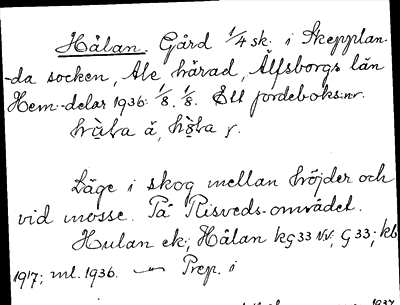 Hålan. Gård 1/4 sk. i Skepplan-
-da socken, Ale härad, Älfsborgs län
Hem-delar 1936: 1/8. 1/8. Ett jordeboksnr.
Läge i skog mellan höjder och
vid mosse. På Risveds-området.
Hulan ek; Hålan kG33 NV; G33; kb
1917; ml. 1936. — Prep. i
1937